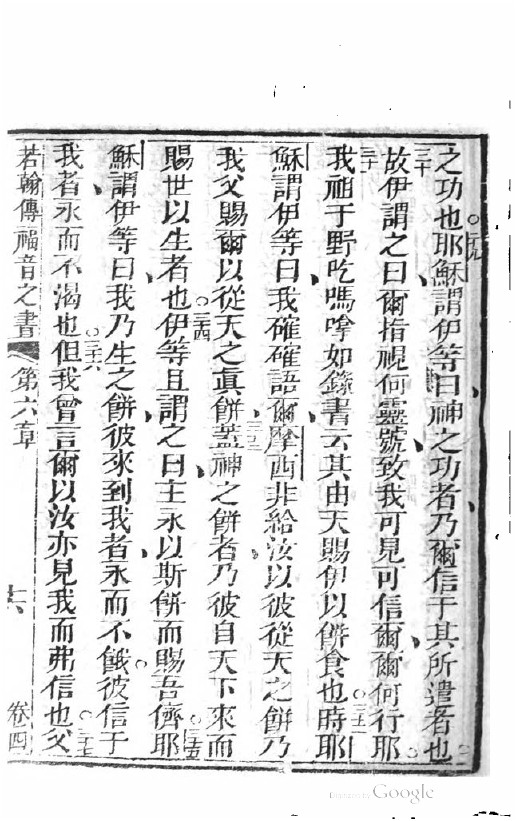 之功也二九耶穌謂伊等曰神之功者乃爾信于其所遣者也
三十故伊謂之曰爾指視何靈號致我可見可信爾爾何行耶
三一我祖于野吃嗎嗱如錄書云其由天賜伊以餅食也三二時耶
穌謂伊等曰我確確語爾摩西非給汝以彼從天之餅乃
我父賜爾以從天之真餅三三蓋神之餅者乃彼自天下來而
賜世以生者也三四伊等且謂之曰主永以斯餅而賜吾儕三五耶
穌謂伊等曰我乃生之餅彼來到我者永而不餓彼信于
我者永而不渴也三六但我曾言爾以汝亦見我而弗信也三七父
若翰傳福音之書 第六章 十六 卷四
Digitized by Google